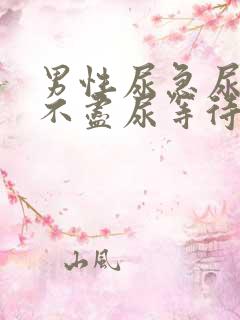 男性尿急尿
不盡尿等待
山風